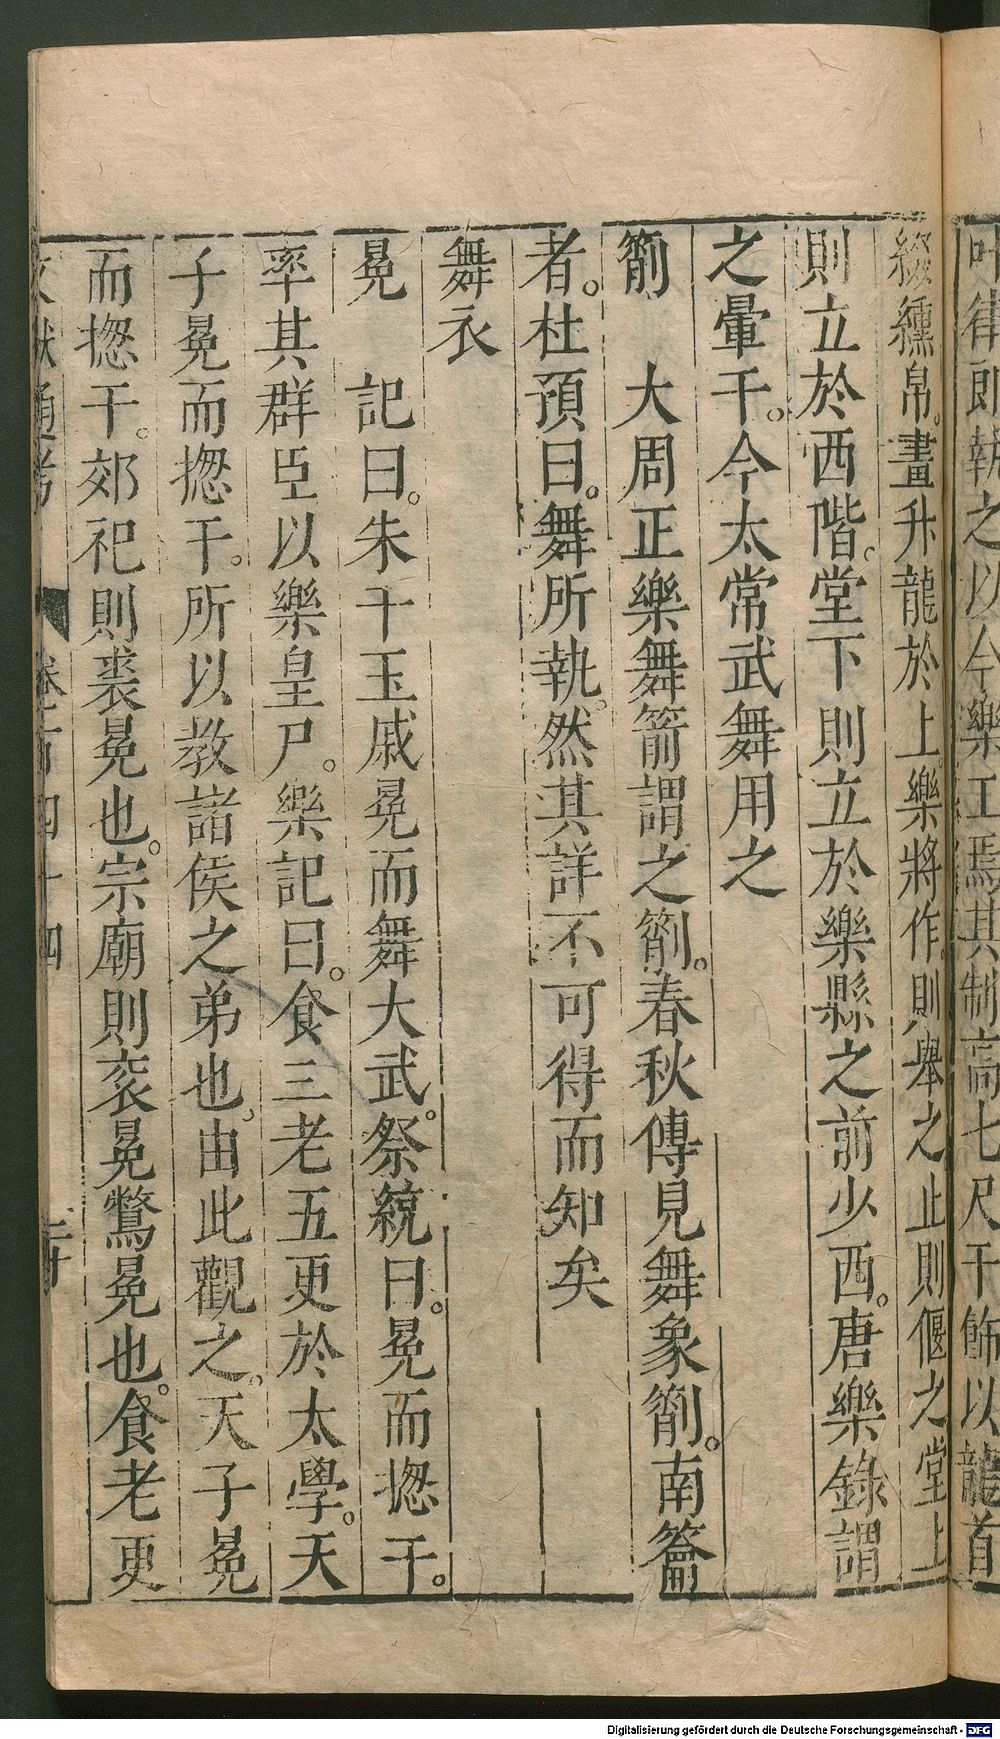 叶律郎執之以令樂工焉其制高七尺干飾以龍首
綴纁帛。畫升龍於上。樂將作。則舉之止則偃之堂上
則立於西階。堂下則立於樂縣之前少西。唐樂錄謂
之暈干。今太常武舞用之
箾　大周正樂舞箭謂之箾。春秋傳見舞象箾。南籥
者。杜預曰。舞所執。然其詳不可得而知矣
舞衣
冕　記曰。朱干玉戚冕而舞大武。祭統曰。冕而揔干。
率其群臣以樂皇尸。樂記曰。食三老五更於太學。天
子冕而揔干。所以教諸侯之弟也。由此觀之。天子冕
而揔干。郊祀則裘冕也。宗廟則衮冕鷩冕也。食老更
文獻通考　卷一百四十四　二十
Digitalisierung gefördert durch die Deutsche Forschungsgemeinschaft - DFG